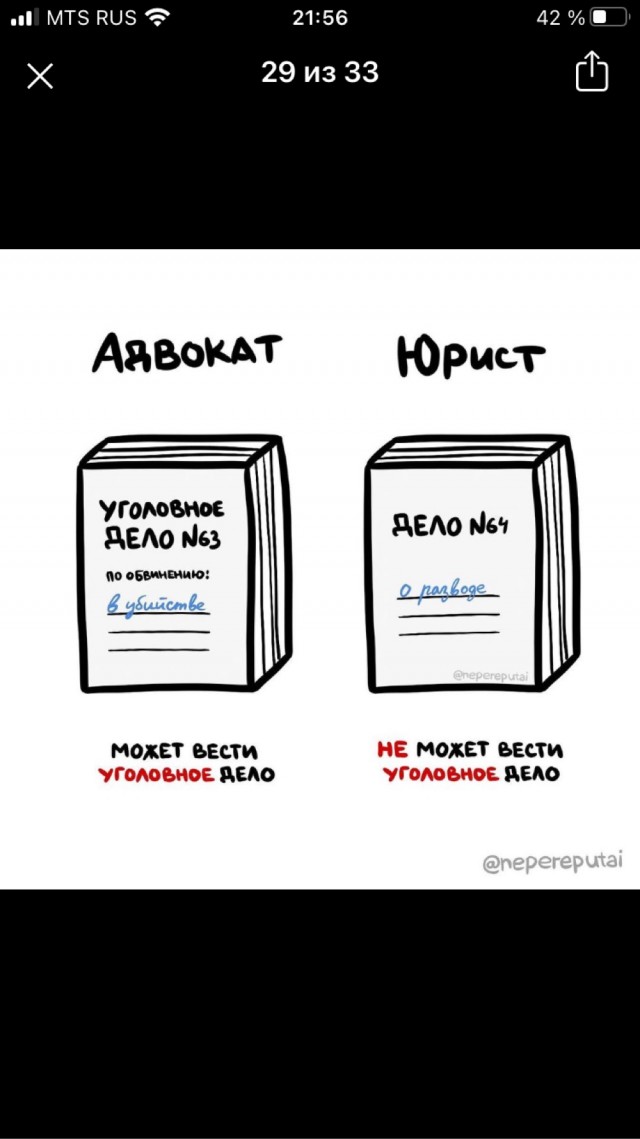 MTS RUS 21:56 42 %
29 из 33
Адвокат
Юрист
УГОЛОВНОЕ
ДЕЛО №63
ПО ОБВИНЕНИЮ:
в убийстве
ДЕЛО №64
о разводе
@nepereputai
МОЖЕТ ВЕСТИ
УГОЛОВНОЕ ДЕЛО
НЕ МОЖЕТ ВЕСТИ
УГОЛОВНОЕ ДЕЛО
@nepereputai